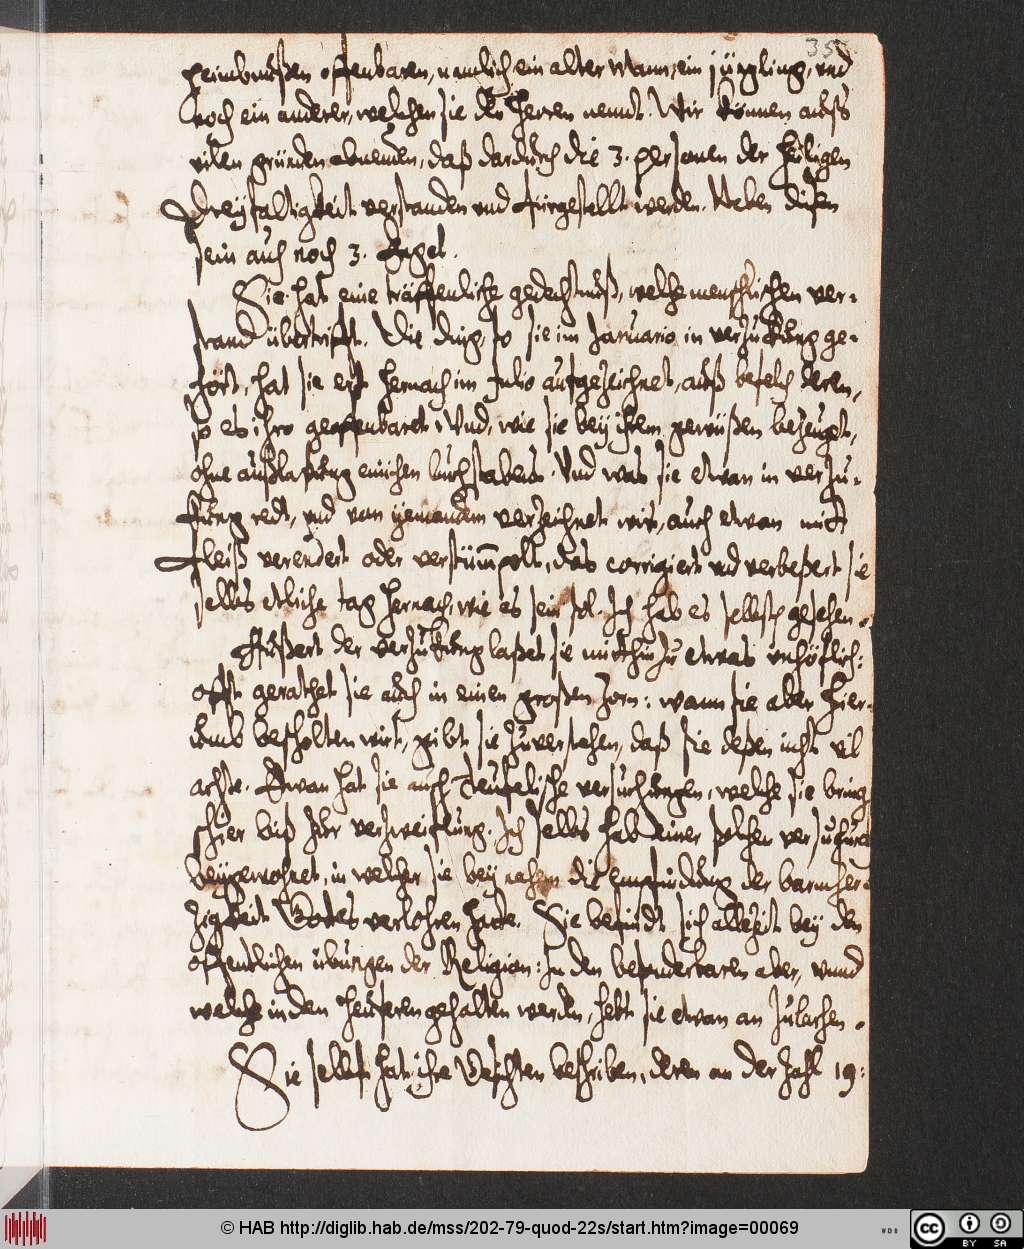 35.
heimbnußen offenbaren, namlich ein alter Mann, ein jüngling, vnd
noch ein anderer, welchen sie den Herren nennt. Wir können auß
vilen gründen abnemen, daß dardurch die 3. personen der Heiligen
Dreyfaltigkeit verstanden vnd fürgestellt werden. Neben disen
sein auch noch 3. Engel.
Sie hat eine träffenliche gedechtnuß, welche menschlichen ver-
stand übertrifft. Die ding, so sie im Januario in verzuckung ge-
hört, hat sie erst hernach im Julio aufgezeichnet, auß befelch deren,
so es ihro geoffenbaret. Vnd, wie sie bey ihrem gewüßen bezeuget,
ohne außlaßung einichen buchstabens. Vnd was sie etwan in verzu-
ckung redt, vnd von yemandem verzeichnet wirt, auch etwan mitt
fleiß verendert oder verstümpelt, das corrigiert vnd verbeßert sie
selbs etliche tag hernach, wie es sein sol. Ich hab es selbst gesehen.
Außert der verzuckung laßet sie mitthinzu etwas vnhöflich:
offt gerathet sie auch in einen großen zorn: wann sie aber hier-
umb bescholten wirt, gibt sie zuverstehen, daß sie deßen nicht vil
achte. Etwan hat sie auch Teufelische versuchungen, welche sie bring
schier biß zur verzweiflung. Ich selbs hab einer solchen versuchung
beygewohnet, in welcher sie bey nahem die empfindung der barmher-
zigkeit Gottes verlohren hatte. Sie befindt sich allezeit bey den
offentlichen übungen der Religion: In den besonderbaren aber, vnnd
welche in den heuseren gehalten werden, hebt sie etwan an zulachen.
Sie selbst hat ihre Gesichten beschriben, deren an der zahl 19:
© HAB http://diglib.hab.de/mss/202-79-quod-22s/start.htm?image=00069
WDB
cc BY SA